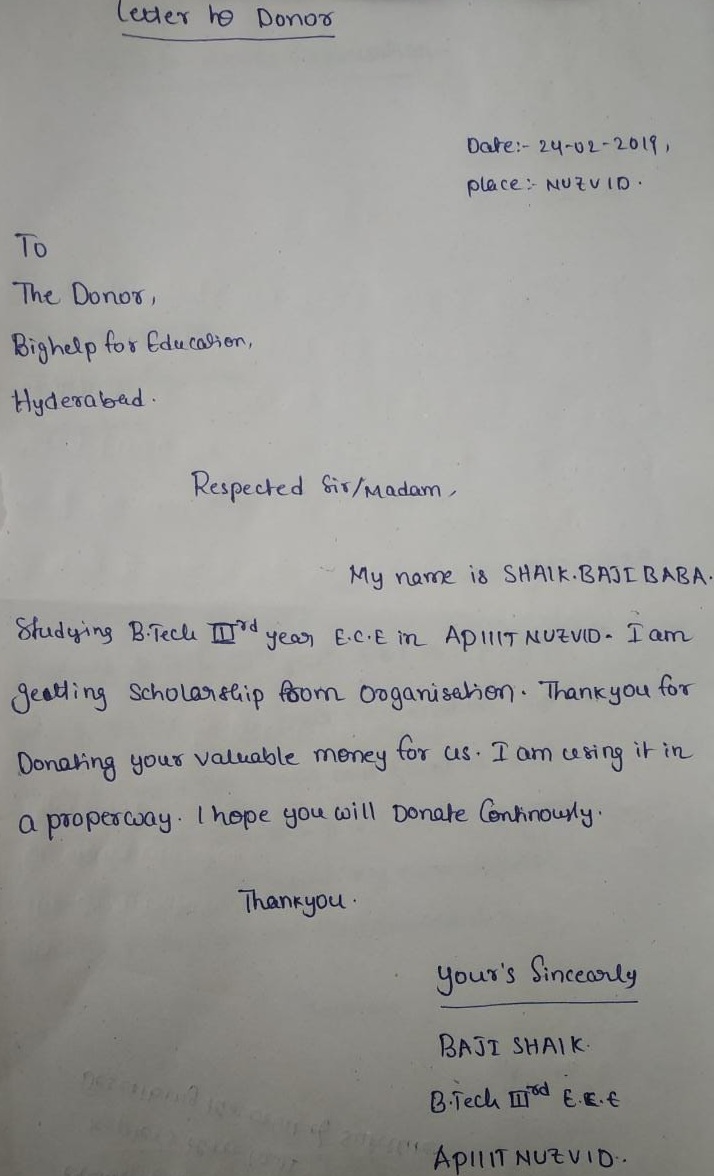 Letter to Donor
Date:- 24-02-2019,
place:- NUZVID.
To
The Donor,
Bighelp for Education,
Hyderabad.
Respected Sir/Madam,
My name is SHAIK.BAJI BABA.
Studying B.Tech IIIrd year E.C.E in APIIIT NUZVID. I am
geatting Scholarship from Organisation. Thankyou for
Donating your valuable money for us. I am using it in
a properway. I hope you will Donate Continously.
Thankyou.
your's Sincearly
BAJI SHAIK.
B.Tech IIIrd E.C.E
APIIIT NUZVID..